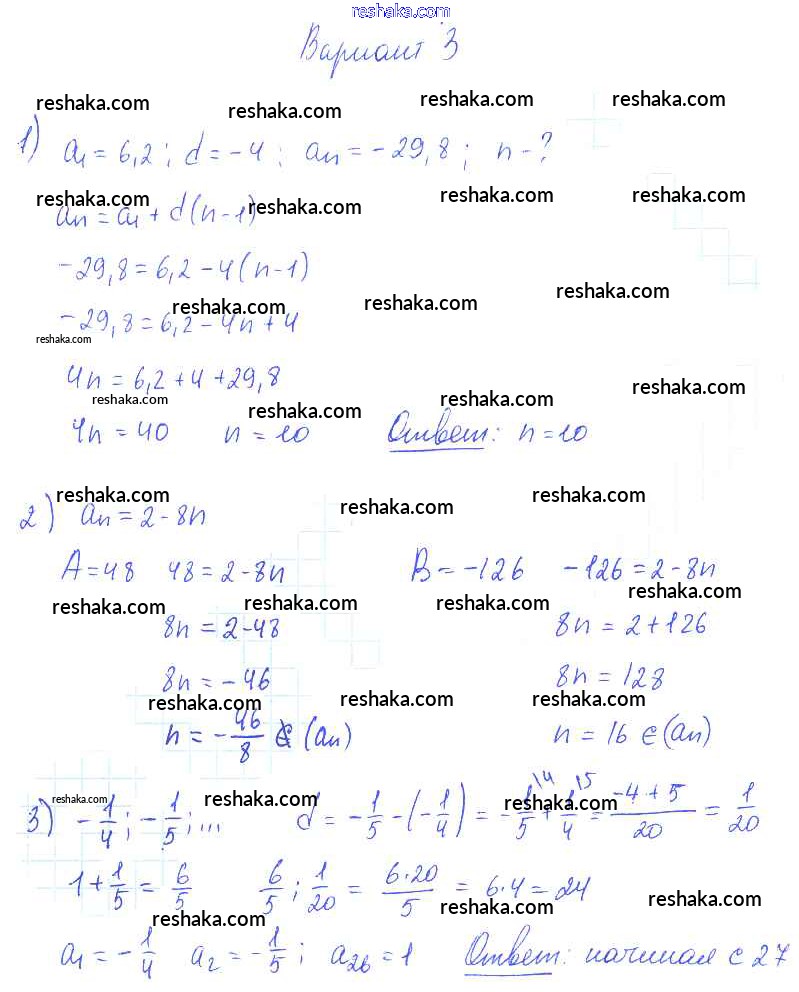 reshaka.com
Вариант 3
reshaka.com reshaka.com reshaka.com reshaka.com
1) a₁ = 6,2 ; d = -4 ; aₙ = -29,8 ; n - ?
reshaka.com reshaka.com reshaka.com reshaka.com
aₙ = a₁ + d(n-1)
-29,8 = 6,2 - 4(n-1)
reshaka.com reshaka.com reshaka.com
-29,8 = 6,2 - 4n + 4
reshaka.com
4n = 6,2 + 4 + 29,8
reshaka.com reshaka.com reshaka.com reshaka.com
4n = 40 n = 10 Ответ: n = 10
reshaka.com reshaka.com reshaka.com
2) aₙ = 2 - 8n
A = 48 48 = 2 - 8n B = -126 -126 = 2 - 8n
reshaka.com reshaka.com reshaka.com reshaka.com
8n = 2 - 48 8n = 2 + 126
8n = -46 8n = 128
reshaka.com reshaka.com reshaka.com
n = -46/8 ∉ (aₙ) n = 16 ∈ (aₙ)
reshaka.com reshaka.com reshaka.com
3) -1/4 ; -1/5 ; ... d = -1/5 - (-1/4) = -1/5 \4 + 1/4 \5 = -4+5/20 = 1/20
1 + 1/5 = 6/5 6/5 ; 1/20 = 6·20/5 = 6·4 = 24
reshaka.com reshaka.com reshaka.com reshaka.com
a₁ = -1/4 a₂ = -1/5 ; a₂₆ = 1 Ответ: начиная с 27